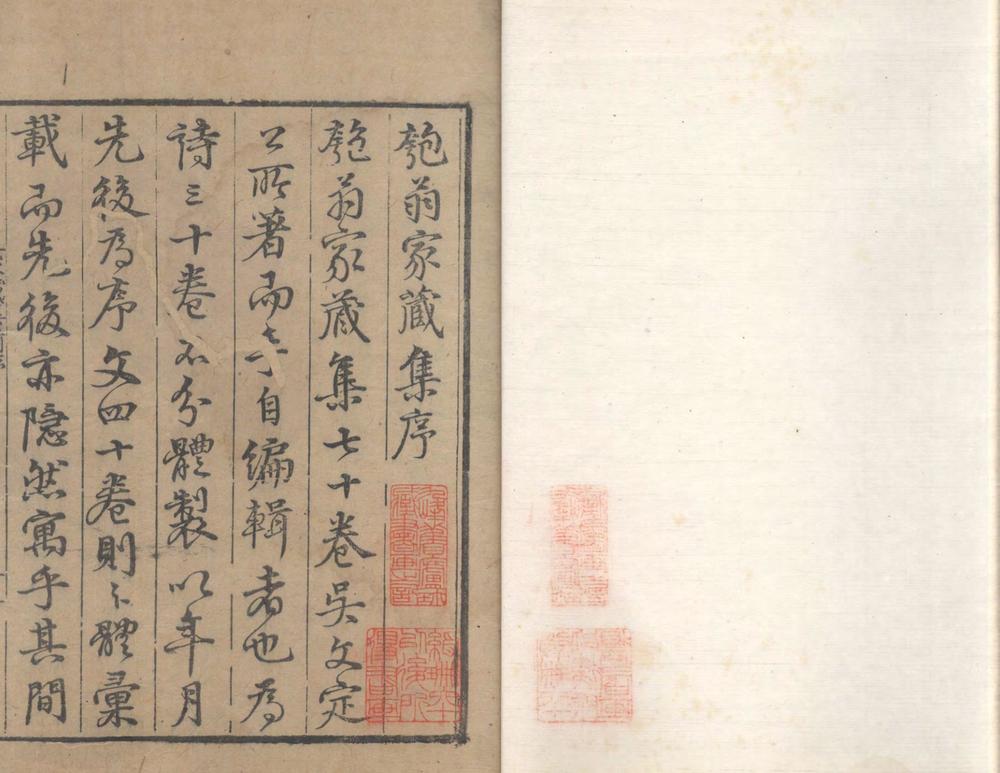 匏翁家藏集序
匏翁家藏集七十卷吳文定
公所著而手自編輯者也為
詩三十卷不分體製以年月
先後為序文四十卷則以體彙
載而先後亦隱然寓乎其間